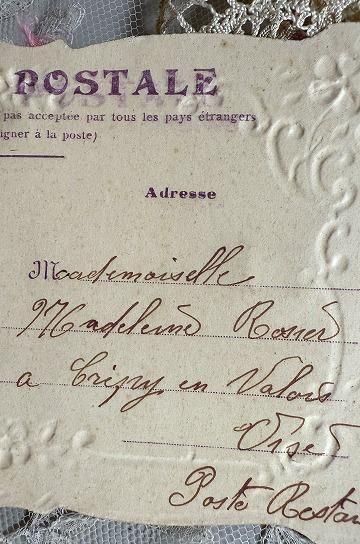 POSTALE
pas acceptée par tous les pays étrangers
igner à la poste)
Adresse
Mademoiselle
Madeleine
a Crépy en Valois
Oise
Poste Restan